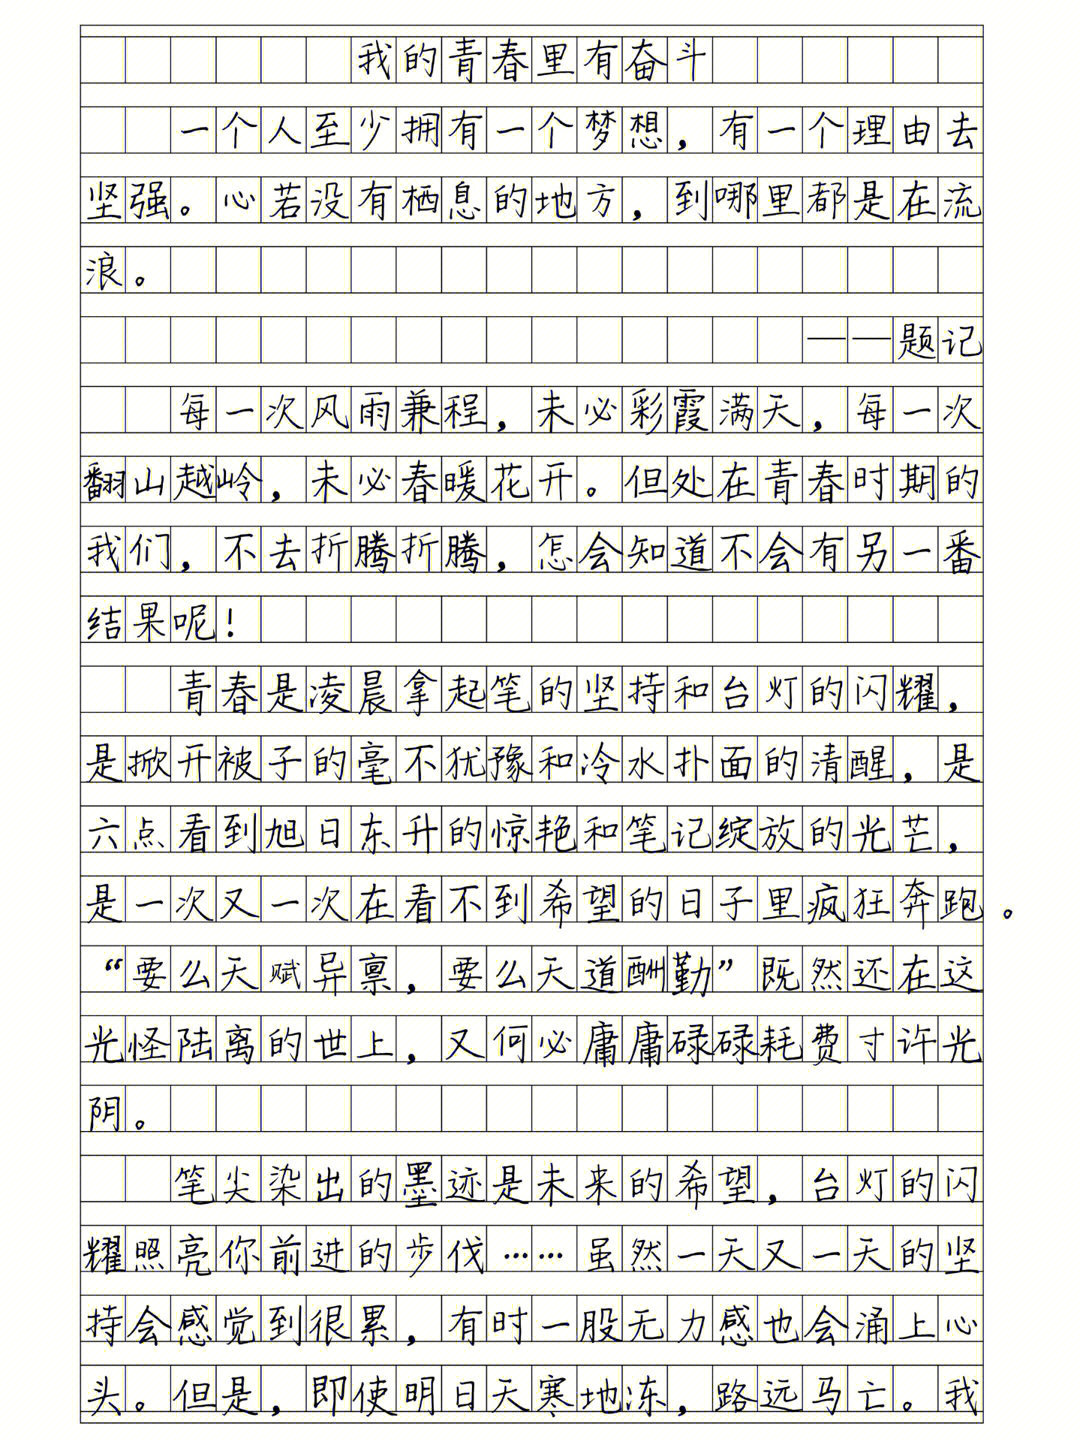 我的青春里有奋斗
一个人至少拥有一个梦想，有一个理由去
坚强。心若没有栖息的地方，到哪里都是在流
浪。
——题记
每一次风雨兼程，未必彩霞满天，每一次
翻山越岭，未必春暖花开。但处在青春时期的
我们，不去折腾折腾，怎会知道不会有另一番
结果呢！
青春是凌晨拿起笔的坚持和台灯的闪耀，
是掀开被子的毫不犹豫和冷水扑面的清醒，是
六点看到旭日东升的惊艳和笔记绽放的光芒，
是一次又一次在看不到希望的日子里疯狂奔跑。
“要么天赋异禀，要么天道酬勤”既然还在这
光怪陆离的世上，又何必庸庸碌碌耗费寸许光
阴。
笔尖染出的墨迹是未来的希望，台灯的闪
耀照亮你前进的步伐……虽然一天又一天的坚
持会感觉到很累，有时一股无力感也会涌上心
头。但是，即使明日天寒地冻，路远马亡。我